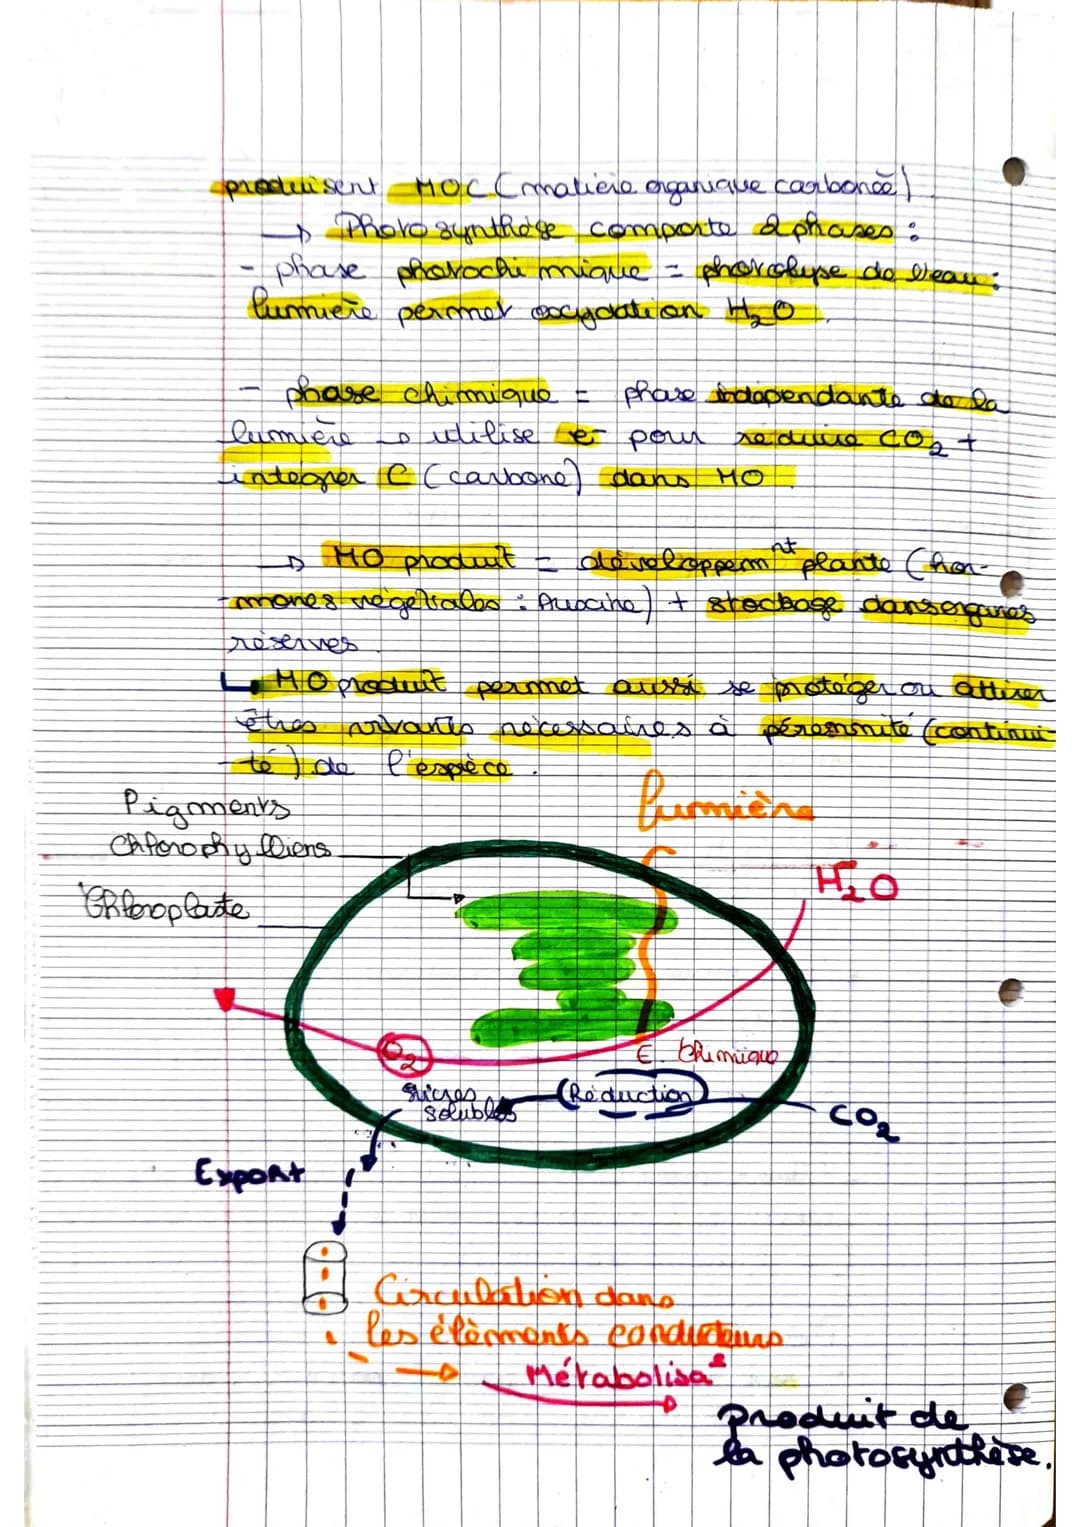 produisent MOC (matière organique carbonée)
→ Photosynthèse comporte 2 phases :
- phase photochimique = photolyse de l'eau :
lumière permet oxydation H₂O.
- phase chimique = phase indépendante de la
lumière → utilise e- pour réduire CO₂ +
intégrer C (carbone) dans MO.
→ MO produit = développem^nt plante (hor-
mones végétales : Auxine) + stockage dans organes
réserves.
↳ MO produit permet aussi se protéger ou attirer
êtres vivants nécessaires à pérennité (continui-
té) de l'espèce.
lumière
Pigments
chlorophylliens
H₂O
Chloroplaste
O₂
E. chimique
sucres
solubles
Réduction
CO₂
Export
Circulation dans
les éléments conducteurs
Métabolisa°
produit de
la photosynthèse.